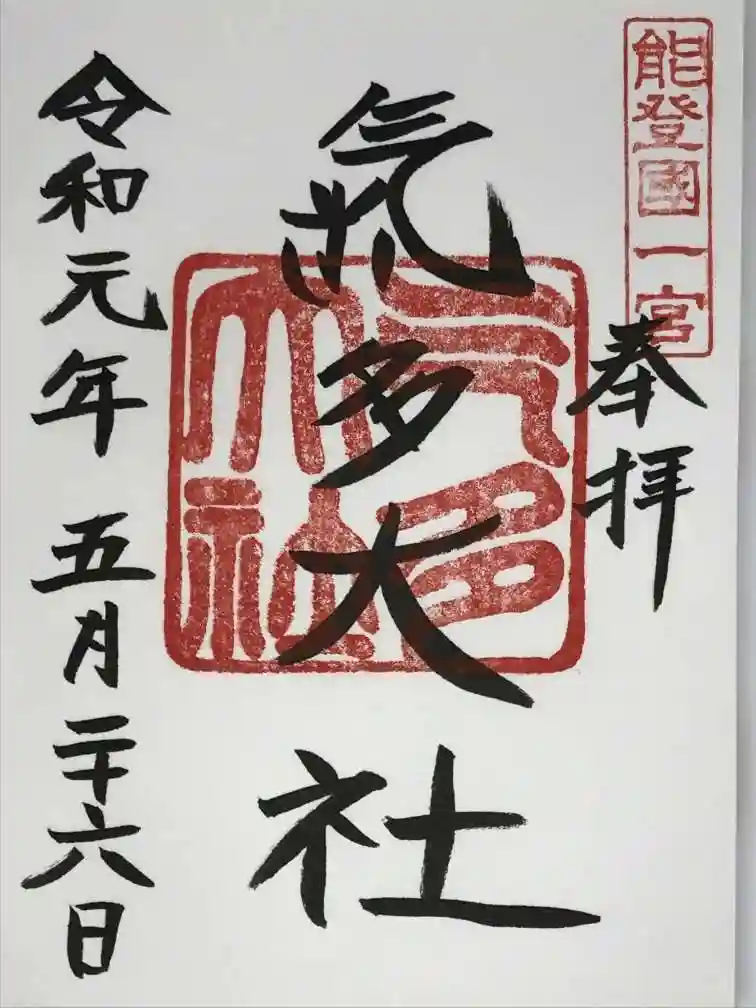 能登國一宮
奉拝
氣多大社
气多大社
令和元年 五月二十六日